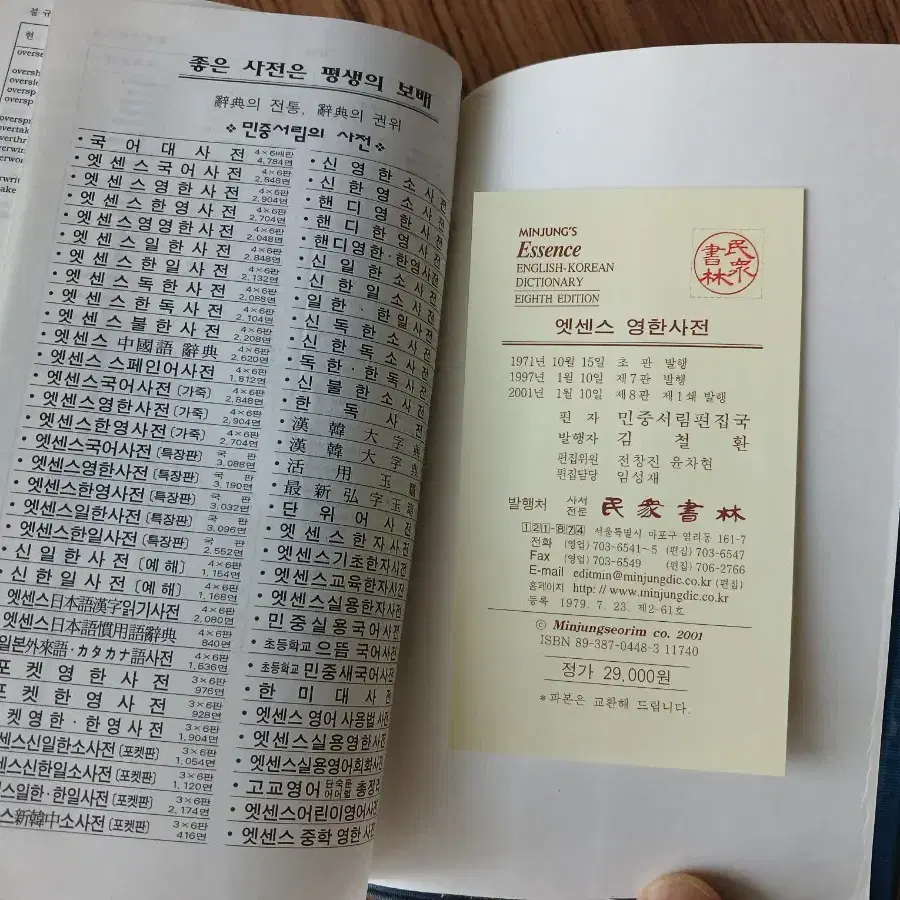 불규
현
overse
oversh
oversle
oversp
overspr
overtak
overthr
overwor
좋은 사전은 평생의 보배
辭典의 전통, 辭典의 권위
민중서림의 사전
• 국어대사전 4×6배판 4,784면
• 엣센스국어사전 4×6판 2,848면
• 엣센스영한사전 4×6판 2,904면
• 엣센스한영사전 4×6판 2,704면
• 엣센스영영한사전 4×6판 2,048면
• 엣센스일한사전 4×6판 2,848면
• 엣센스한일사전 4×6판 2,132면
• 엣센스독한사전 4×6판 2,088면
• 엣센스한독사전 4×6판 2,104면
• 엣센스불한사전 4×6판 2,208면
• 엣센스 中國語 辭典 4×6판 2,620면
• 엣센스 스페인어사전 4×6판 1,812면
• 엣센스국어사전 (가죽) 4×6판 2,848면
• 엣센스영한사전 (가죽) 4×6판 2,904면
• 엣센스한영사전 (가죽) 4×6판 2,704면
• 엣센스국어사전 (특장판) 국판 3,088면
• 엣센스영한사전 (특장판) 국판 3,190면
• 엣센스한영사전 (특장판) 국판 3,032면
• 엣센스일한사전 (특장판) 국판 3,096면
엣센스한일사전 (특장판) 국판 2,552면
신일한사전 (예해) 4×6판 1,154면
신한일사전 (예해) 4×6판 1,168면
엣센스日本語漢字읽기사전 4×6판 2,080면
엣센스日本語慣用語辭典 4×6판 840면
일본外來語·カタカナ語사전 4×6판 1,536면
포켓영한사전 3×6판 976면
포켓한영사전 3×6판 928면
켓영한·한영사전 3×6판 1,904면
센스신일한소사전 (포켓판) 3×6판 1,054면
센스신한일소사전 (포켓판) 3×6판 1,120면
스일한·한일사전 (포켓판) 3×6판 2,174면
스新韓中소사전 (포켓판) 3×6판 416면
• 신영한소사전
• 신한영소사전
• 핸디영한사전
• 핸디한영사전
• 핸디영한·한영사전
• 신일한소사전
• 신한일소사전
• 일한·한일사전
• 신독한소사전
• 신한독소사전
• 독한·한독사전
• 신불한소사전
• 한독사전
• 漢韓大字典
• 漢韓大字典
• 活用玉篇
• 最新弘字玉篇
• 단위어사전
• 엣센스한자사전
• 엣센스기초한자사전
• 엣센스교육한자사전
• 엣센스실용한자사전
• 민중실용국어사전
• 초등학교 으뜸 국어사전
• 초등학교 민중새국어사전
• 한미대사전
• 엣센스 영어 사용법 사전
• 엣센스실용영한사전
• 엣센스실용영어회화사전
• 고교영어 단숙문어어법 총정
• 엣센스어린이영어사전
• 엣센스 중학 영한 사전
MINJUNG'S
Essence
ENGLISH-KOREAN
DICTIONARY
EIGHTH EDITION
民衆書林
엣센스 영한사전
1971년 10월 15일 초 판 발행
1997년 1월 10일 제7판 발행
2001년 1월 10일 제8판 제1쇄 발행
편 자 민중서림편집국
발행자 김 철 환
편집위원 전창진 윤차현
편집담당 임성재
발행처 사서전문 民衆書林
121-874 서울특별시 마포구 염리동 161-7
전화 (영업) 703-6541~5 (편집) 703-6547
Fax (영업) 703-6549 (편집) 706-2766
E-mail editmin@minjungdic.co.kr (편집)
홈페이지 http://www.minjungdic.co.kr
등록 1979. 7. 23. 제2-61호
© Minjungseorim co. 2001
ISBN 89-387-0448-3 11740
정가 29,000원
*파본은 교환해 드립니다.